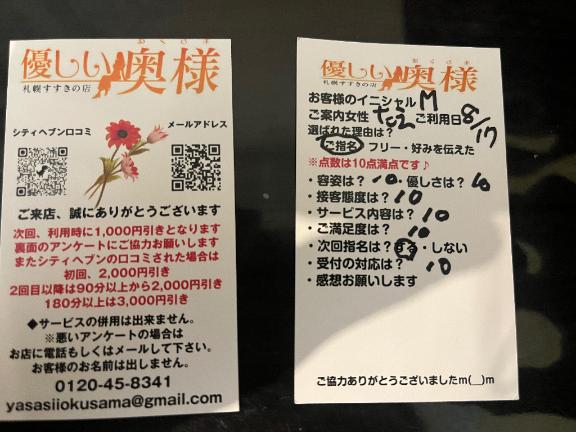 おくさま
優しい奥様
札幌すすきの店
シティヘブン口コミ
メールアドレス
ご来店、誠にありがとうございます
次回、利用時に1,000円引きとなります
裏面のアンケートにご協力お願いします
またシティヘブンの口コミされた場合は
初回、2,000円引き
2回目以降は90分以上から2,000円引き
180分以上は3,000円引き
◆サービスの併用は出来ません。
※悪いアンケートの場合は
お店に電話もしくはメールして下さい。
お客様のお名前は出しません。
0120-45-8341
yasasiiokusama@gmail.com
おくさま
優しい奥様
札幌すすきの店
お客様のイニシャル M
ご案内女性 ご利用日 8/17
選ばれた理由は?
ご指名 フリー・好みを伝えた
※点数は10点満点です♪
・容姿は? 10・優しさは? 10
・接客態度は? 10
・サービス内容は? 10
・ご満足度は? 10
・次回指名は?する・しない
・受付の対応は? 10
・感想お願いします
ご協力ありがとうございましたm(__)m